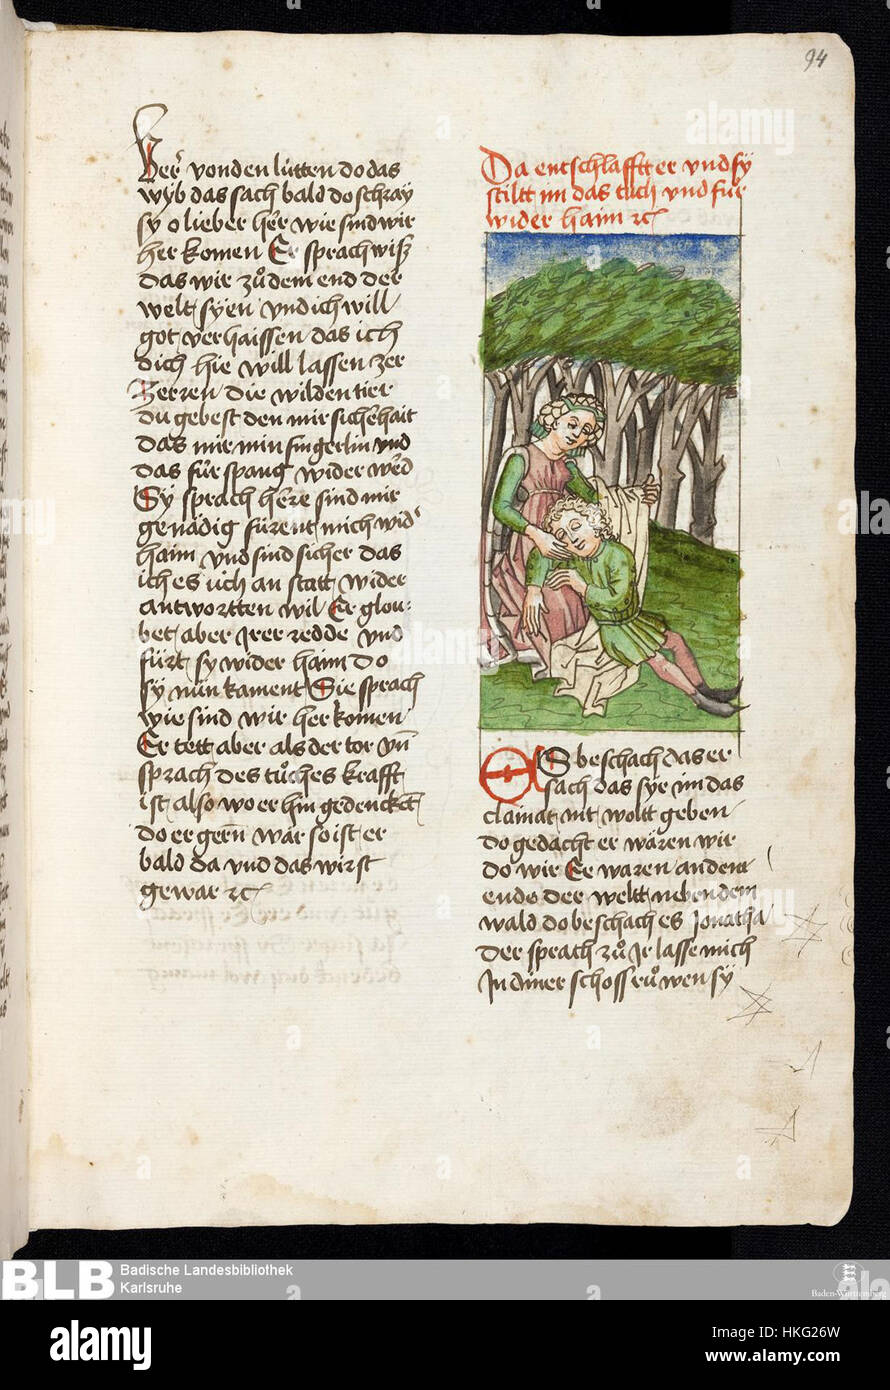 94
ver vonden lutten do das
wyb das sach bald do schray
sy o lieber her wie sind wir
her komen Er sprach wiß
das wir zů dem end der
welt syen vnd ich will
got verhaissen das ich
dich hie will lassen zer
zerren die wilden tier
du gebest den mir sicherhait
das mir min fingerlin vnd
das fürspang wider werd
Sy sprach herre sind mir
genädig fürent mich wid
haim vnd sind sicher das
ich es üch an statt wider
antwortten wil Er glou-
bet aber Jrer redde vnd
fürt sy wider haim do
sy nün kament Sie sprach
wie sind wir her komen
Er tett aber als der tor vn
sprach des tůches krafft
ist also wo er hin gedencket
do er gern wär so ist er
bald da vnd das wirst
gewar rc
Da entschlafft er vnd sy
stiltt im das tuch vnd für
wider haim rc
Es beschach das er
sach das syr im das
clainat nit woltt geben
do gedacht er wären wir
do wir Ee waren an dem
ende der weltt neben dem
wald do beschach es Jonatha
der sprach zů Jr lasse mich
Jn diner schoss růwen sy
BLB
Badische Landesbibliothek
Karlsruhe
Baden-Württemberg
alamy
alamy
Image ID: HKG26W
www.alamy.com